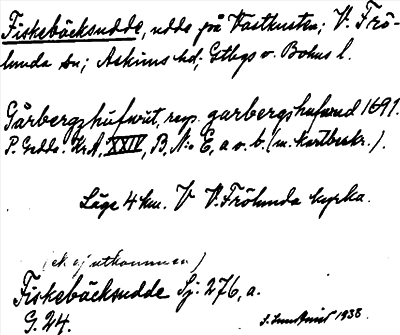 Fiskebäcksudde, udde på Västkusten; V. Frö-
lunda sn; Askims hd; Gtbgs o. Bohus l.
Gårbergzhufwüt, resp. garbergshufwud 1691.
P. Gedda. KrA, XXIV, B, N:o E, a o. b. (m. Kartbeskr.).
Läge 4 km. V V. Frölunda kyrka.
(ek. ej utkommen)
Fiskebäcksudde Sj: 276, a.
G. 24.
1938